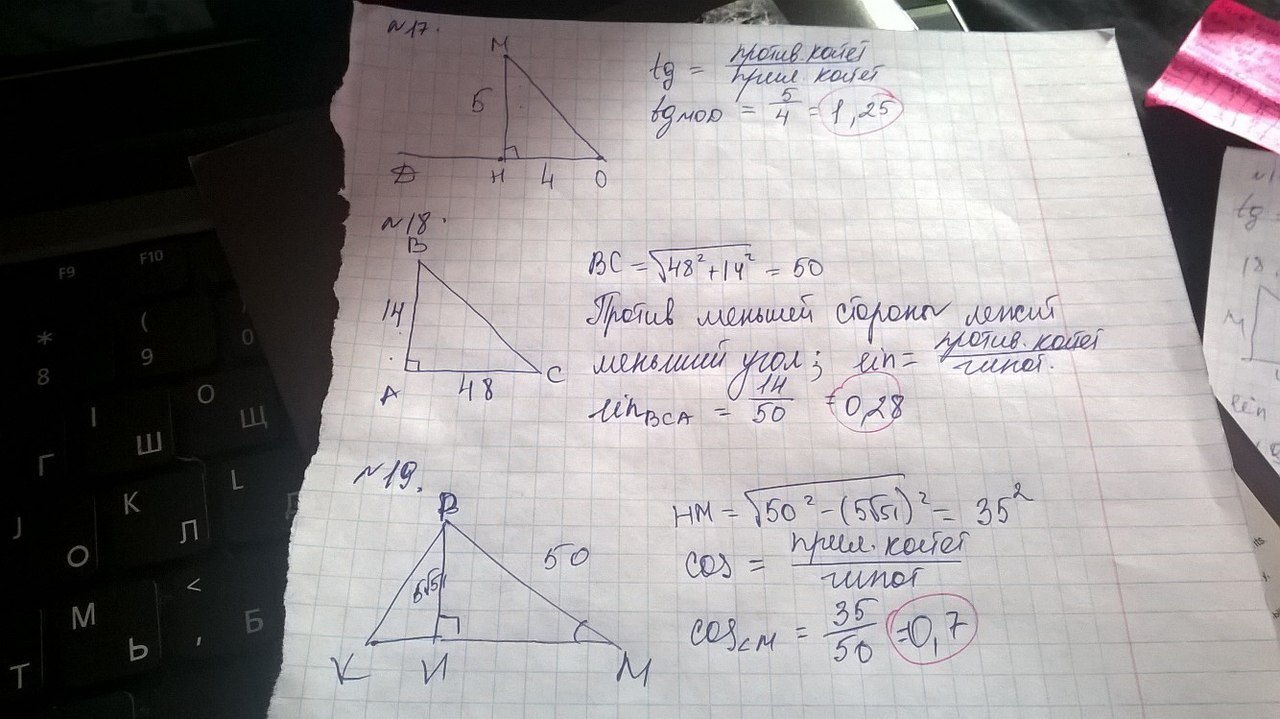 №17.
M
5
D
H
4
O
tg = против. катет / прил. катет
tg MOD = 5/4 = 1,25
№18.
B
14
A
48
C
BC = √48²+14² = 50
Против меньшей стороны лежит
меньший угол; sin = против. катет / гипот.
sin BCA = 14/50 = 0,28
№19.
B
50
K
И
M
HM = √50² – (5√51)² = 35²
cos = прил. катет / гипот
cos∠M = 35/50 = 0,7
F9
F10
*
8
(
9
0
Г
I
Ш
O
Щ
J
O
K
Л
L
T
М
Ь
<
,
Б
tg
sin